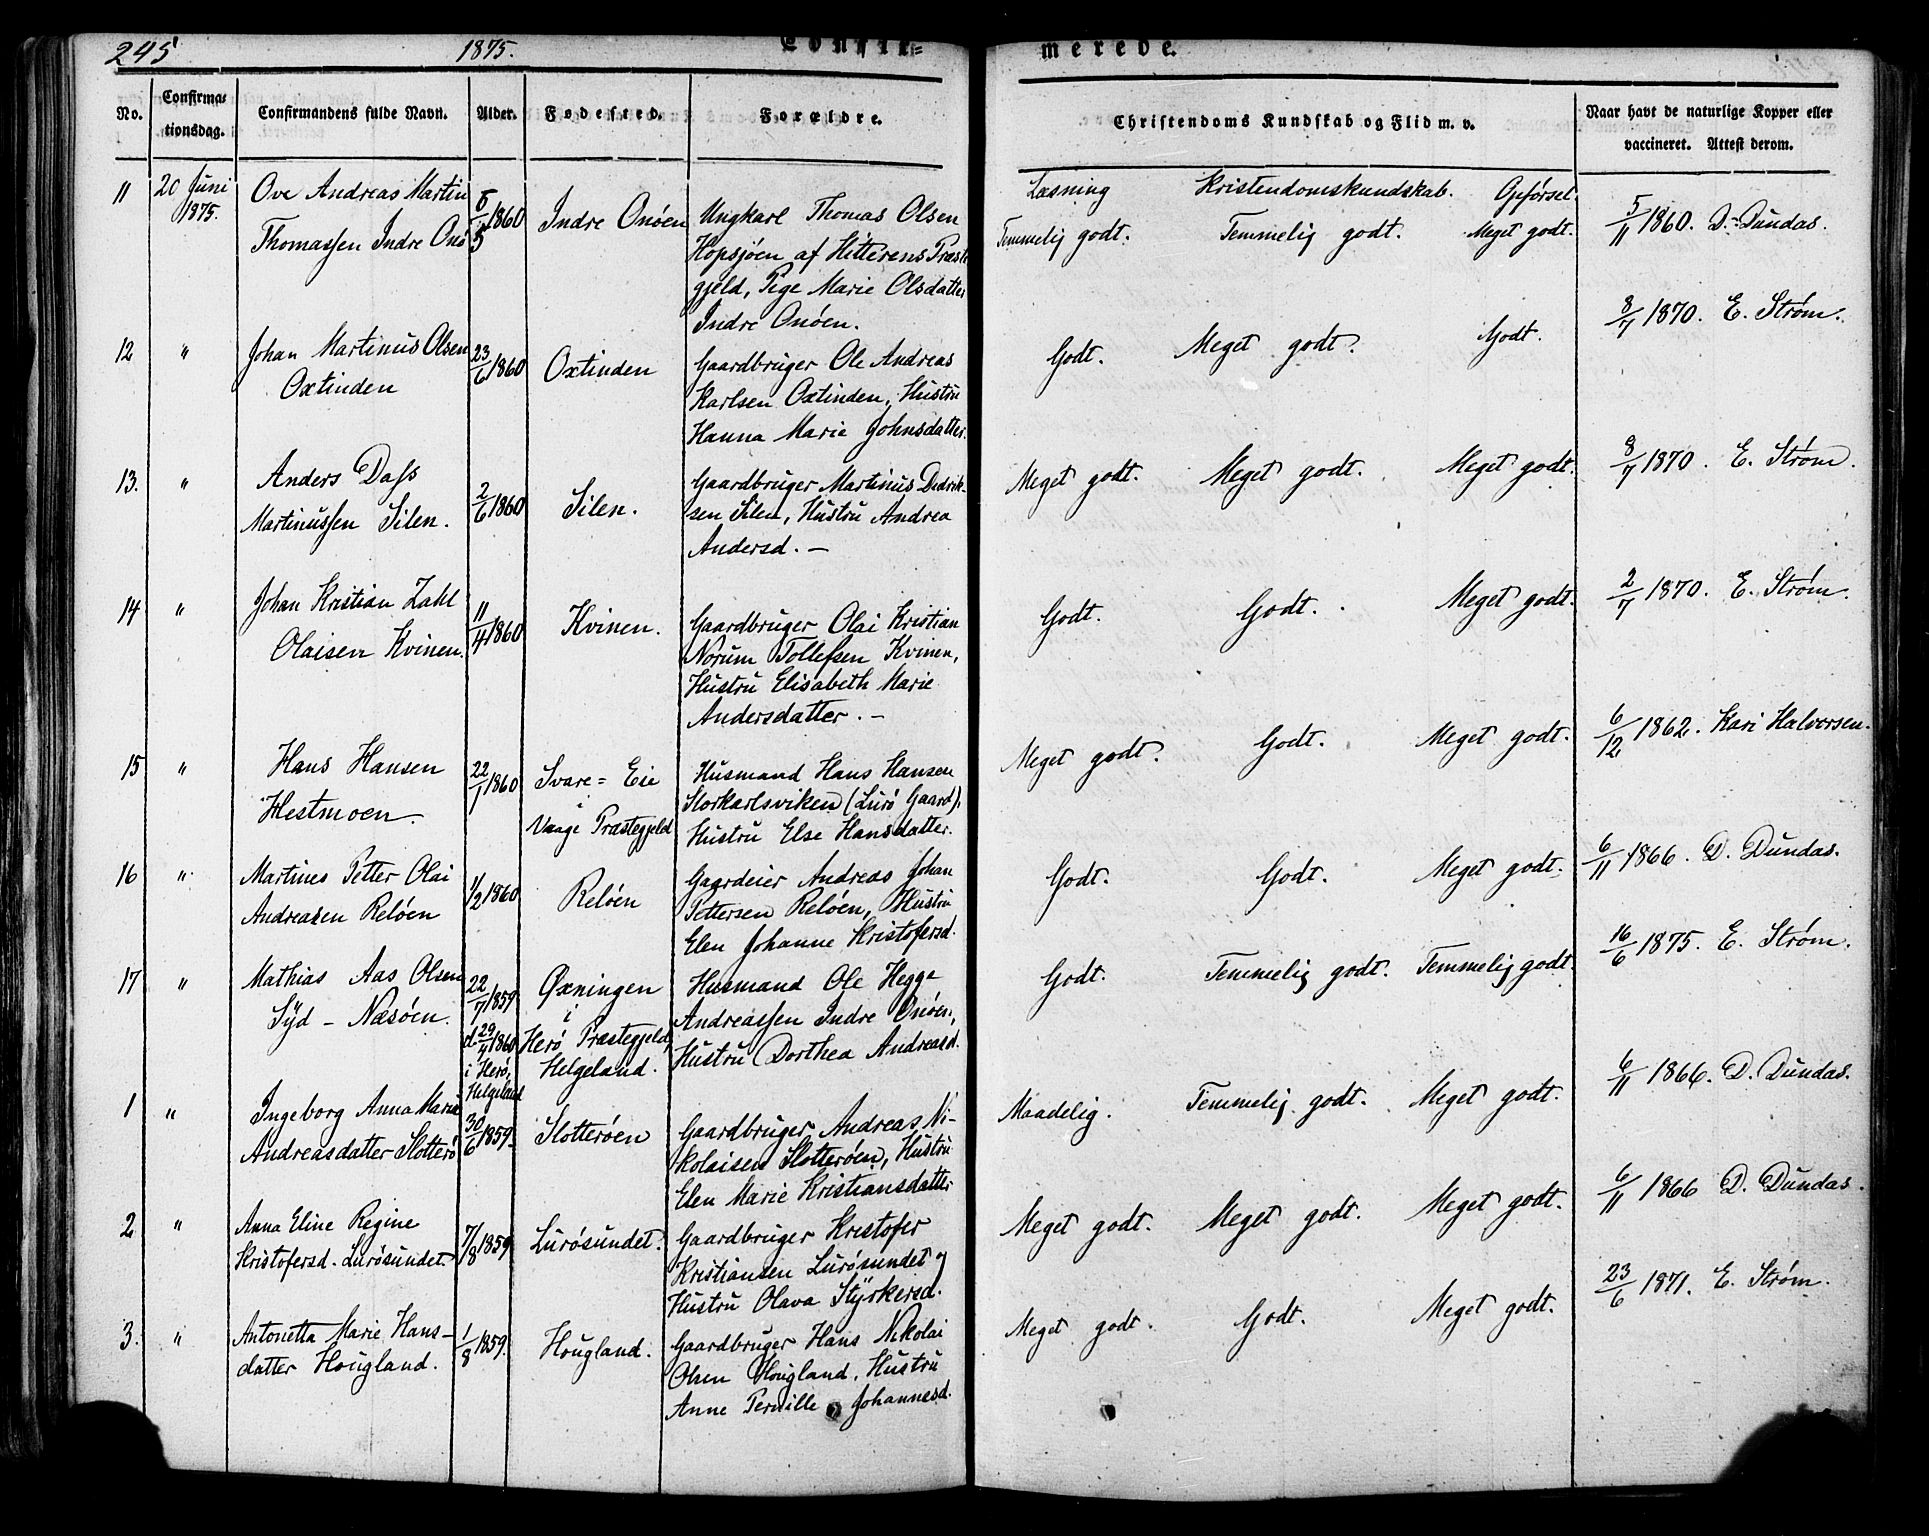 245 1875. Confir=
merede.
No. Confirma=
tionsdag. Confirmandens fulde Navn. Alder. Fødested. Forældre.
Christendoms Kundskab og Flid m. v. Naar havt de naturlige Kopper eller
vaccineret. Attest derom.
Læsning Kristendomskundskab. Opførsel.
11 20 Juni
1875.
Ove Andreas Martin
Thomassen Indre Onø
5/5 1860
Indre Onøen
Ungkarl Thomas Olsen
Hopsjøen af Hitterens Præste
gjeld, Pige Marie Olsdatter
Indre Onøen.
Temmelig godt. Temmelig godt. Meget godt.
5/11 1860. D. Dundas.
12 "
Johan Martinus Olsen
Oxtinden
23/6 1860
Oxtinden
Gaardbruger Ole Andreas
Karlsen Oxtinden, Hustru
Hanna Marie Johnsdatter.
Godt. Meget godt. Godt.
8/7 1870. E. Strøm.
13. "
Anders Dass
Martinussen Silen.
2/6 1860
Silen.
Gaardbruger Martinus Dedrik-
sen Silen, Hustru Andrea
Andersd. —
Meget godt. Meget godt. Meget godt.
8/7 1870. E. Strøm.
14 "
Johan Kristian Zahl
Olaisen Kvinen.
11/4 1860
Kvinen.
Gaardbruger Olai Kristian
Norum Tollefsen Kvinen,
Hustru Elisabeth Marie
Andersdatter. —
Godt. Godt. Meget godt.
2/7 1870. E. Strøm.
15 "
Hans Hansen
Hestmoen.
22/1 1860
Svare = Eie
i
Vaage Præstegjeld
Husmand Hans Hansen
Storkarlsviken (Lurø Gaard),
Hustru Else Hansdatter.
Meget godt. Godt. Meget godt.
6/12 1862. Kari Halversen.
16 "
Martines Petter Olai
Andreasen Reløen
1/2 1860
Reløen
Gaardeier Andreas Johan
Pettersen Reløen, Hustru
Elen Johanne Kristofersd.
Godt. Godt. Meget godt.
6/11 1866. D. Dundas.
17 "
Mathias Aas Olsen
Syd - Næsøen.
22/7 1859
d. 29/4 1860
i Herø,
Helgeland
Øxningen
i
Herø Præstegjeld,
Helgeland.
Husmand Ole Hegge
Andreassen Indre Onøen,
Hustru Dorthea Andreasd.
Godt. Temmelig godt. Temmelig godt.
16/6 1875. E. Strøm.
1 "
Ingeborg Anna Marie
Andreasdatter Slotterø
30/6 1859.
Slotterøen
Gaardbruger Andreas Ni-
kolaisen Slotterøen, Hustru
Elen Marie Kristiansdatter
Maadelig. Temmelig godt. Meget godt.
6/11 1866. D. Dundas.
2 "
Anna Eline Regine
Kristofersd. Lurøsundet.
7/8 1859
Lurøsundet.
Gaardbruger Kristofer
Kristiansen Lurøsundet og
Hustru Olava Styrkersd.
Meget godt. Meget godt. Meget godt.
6/11 1866 D. Dundas.
3. "
Antonetta Marie Hans-
datter Hougland.
1/8 1859.
Hougland.
Gaardbruger Hans Nikolai
Olsen Hougland, Hustru
Anne Pernille Johannesd.
Meget godt. Godt. Meget godt.
23/6 1871. E. Strøm.